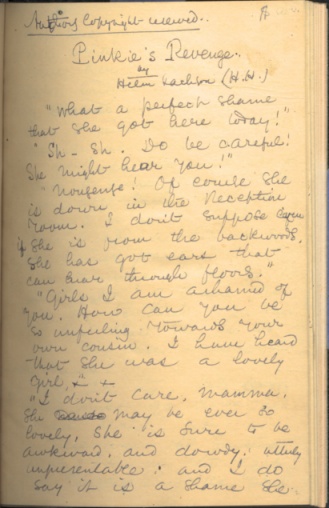 Authors Copyright reserved..
Pinkie's Revenge..
by
Helen Jackson (H.H.)
"What a perfect shame
that she got here today!"
"Sh - Sh. Do be careful!
She might hear you!"
"Nonsense! Of course she
is down in the Reception
room. I don't suppose even
if she is from the backwoods.
she has got ears that
can hear through floors."
"Girls I am ashamed of
you. How can you be
so unfeeling towards your
own cousin. I have heard
that she was a lovely
girl,
"I don't care, Mamma,
She may be ever so
lovely, she is sure to be
awkward, and dowdy, utterly
unpresentable: and I do
say it is a shame she..